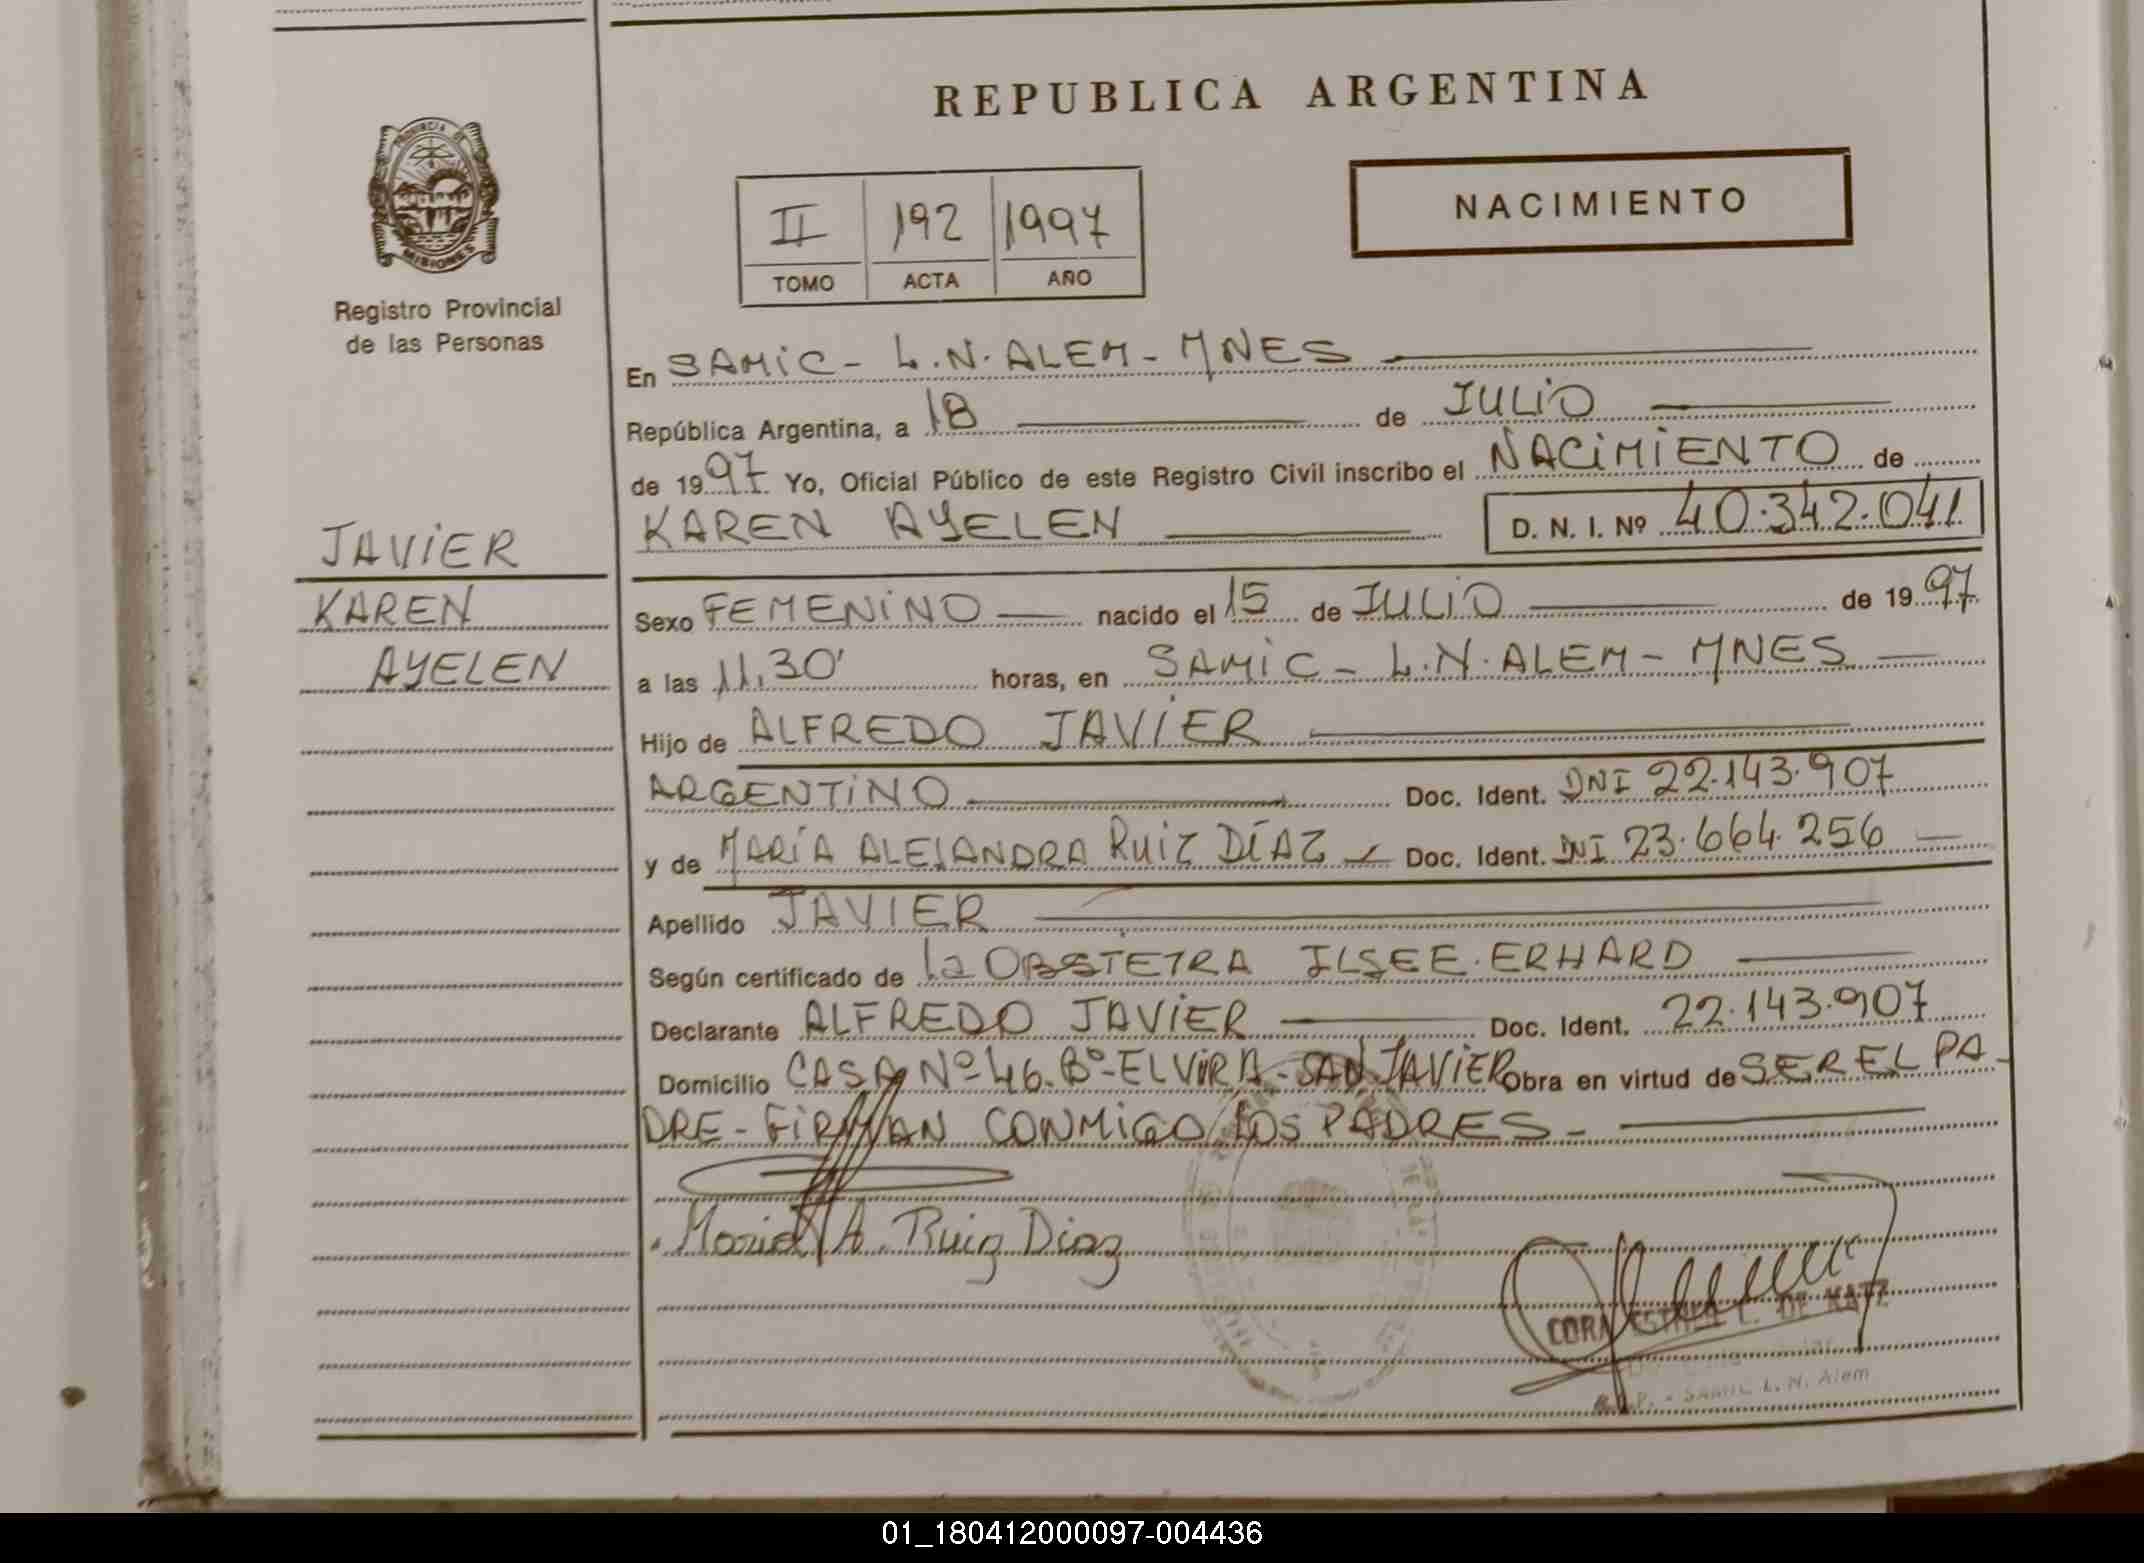 REPUBLICA ARGENTINA
PROVINCIA DE
MISIONES
Registro Provincial
de las Personas
II 192 1997
TOMO ACTA AÑO
NACIMIENTO
En SAMIC - L.N. ALEM - MNES
República Argentina, a 18 de JULIO
de 1997 Yo, Oficial Público de este Registro Civil inscribo el NACIMIENTO de
KAREN AYELEN D. N. I. Nº 40.342.041
JAVIER
KAREN
AYELEN
Sexo FEMENINO nacido el 15 de JULIO de 1997
a las 11,30' horas, en SAMIC - L.N. ALEM - MNES
Hijo de ALFREDO JAVIER
ARGENTINO Doc. Ident. DNI 22.143.907
y de MARÍA ALEJANDRA RUIZ DÍAZ Doc. Ident. DNI 23.664.256
Apellido JAVIER
Según certificado de la OBSTETRA ILSEE. ERHARD
Declarante ALFREDO JAVIER Doc. Ident. 22.143.907
Domicilio CASA Nº 46. Bº-ELVIRA - SAN JAVIER Obra en virtud de SER EL PA-
DRE - FIRMAN CONMIGO LOS PADRES -
Maria A. Ruiz Diaz
CORA L. DE KATZ
- SAMIC L. N. Alem
01_180412000097-004436